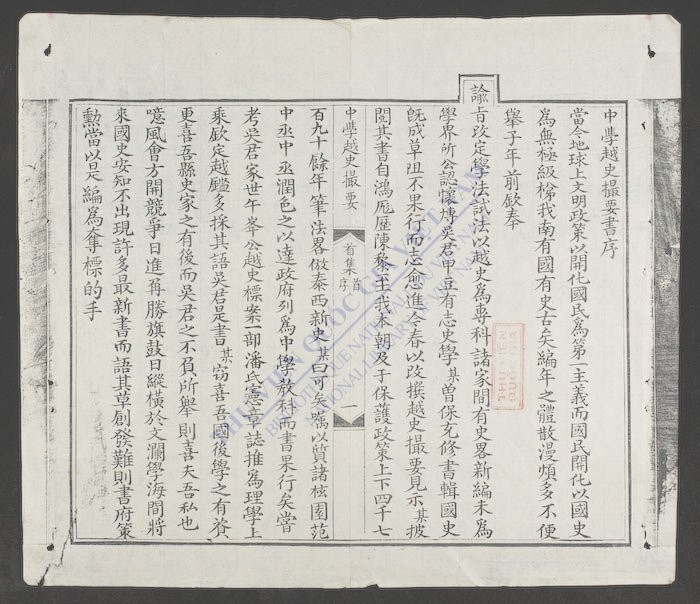 中學越史撮要書序
當今地球上文明政策以開化國民為第一主義而國民開化以國史
為無極級梯我南有國有史古矣編年之體散漫煩多不便
舉子年前欽奉
諭旨改定學法試法以越史為專科諸家間有史畧新編未為
學界所公認懷慱吳君甲豆有志史學某曽保充修書輯國史
旣成草沮不果行而志愈進今春以改撰越史撮要見示某披
閱其書自鴻厖歷陳黎至我本朝及于保護政策上下四千七
中學越史撮要
首集
首序
一
百九十餘年筆法畧倣泰西新史某曰可矣囑以質諸核園范
中丞中丞潤色之以達政府列為中學教科而書果行矣嘗
考吳君家世午峯公越史標案一部潘氏憲章誌推為理學上
乘欽定越鑑多採其語吳君是書某窃喜吾國後學之有資
更喜吾縣史家之有後而吳君之不負所舉則喜夫吾私也
噫風會方開競爭日進再勝旗鼓日縱橫於文瀾學海間將
來國史安知不出現許多最新書而語其草創發難則書府策
勳當以是編為奪標的手
THƯ VIỆN QUỐC GIA VIỆT NAM
BIBLIOTHEQUE NATIONALE DU VIETNAM
NATIONAL LIBRARY OF VIETNAM
THƯ VIỆN
QUỐC GIA